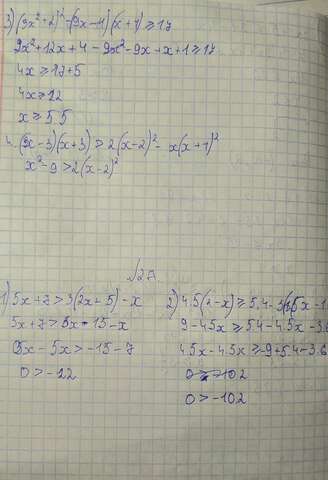 3) (3x²+2)²-(9x-1)(x+1)≥17
9x²+12x+4-9x²-9x+x+1≥17
4x≥17+5
4x≥22
x≥5 5
4. (x-3)(x+3)>2(x-2)²-x(x+1)²
x²-9>2(x-2)²
√27.
1) 5x+7>3(2x+5)-x
5x+7>6x-15-x
5x-5x>-15-7
0>-22
2) 4.5(2-x)≥5.4-3(1.5x-1.
9-4.5x≥5.4-4.5x-3.6
4.5x-4.5x≥-9+5.4-3.6
0>-10.2
0>-10.2